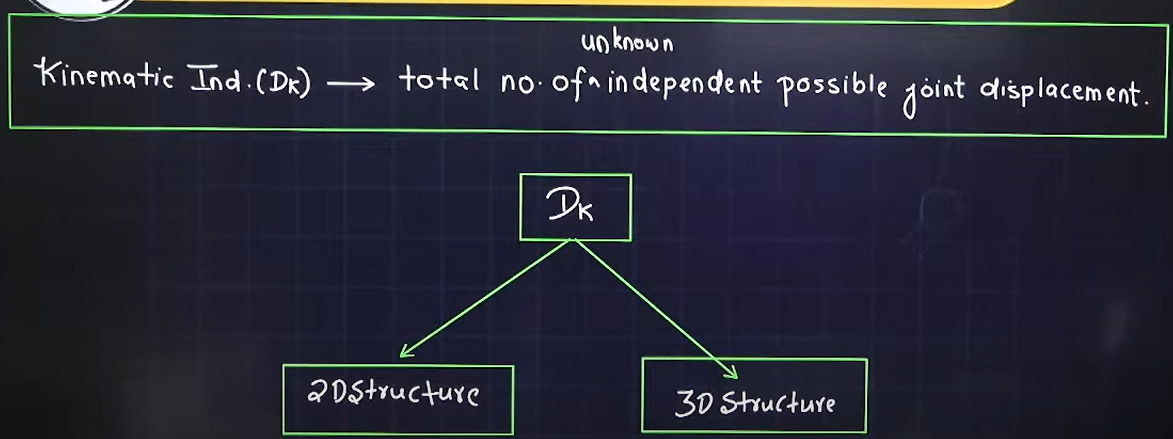 unknown
Kinematic Ind.(DK) → total no. of ^ independent possible joint displacement.
DK
2D Structure
3D Structure